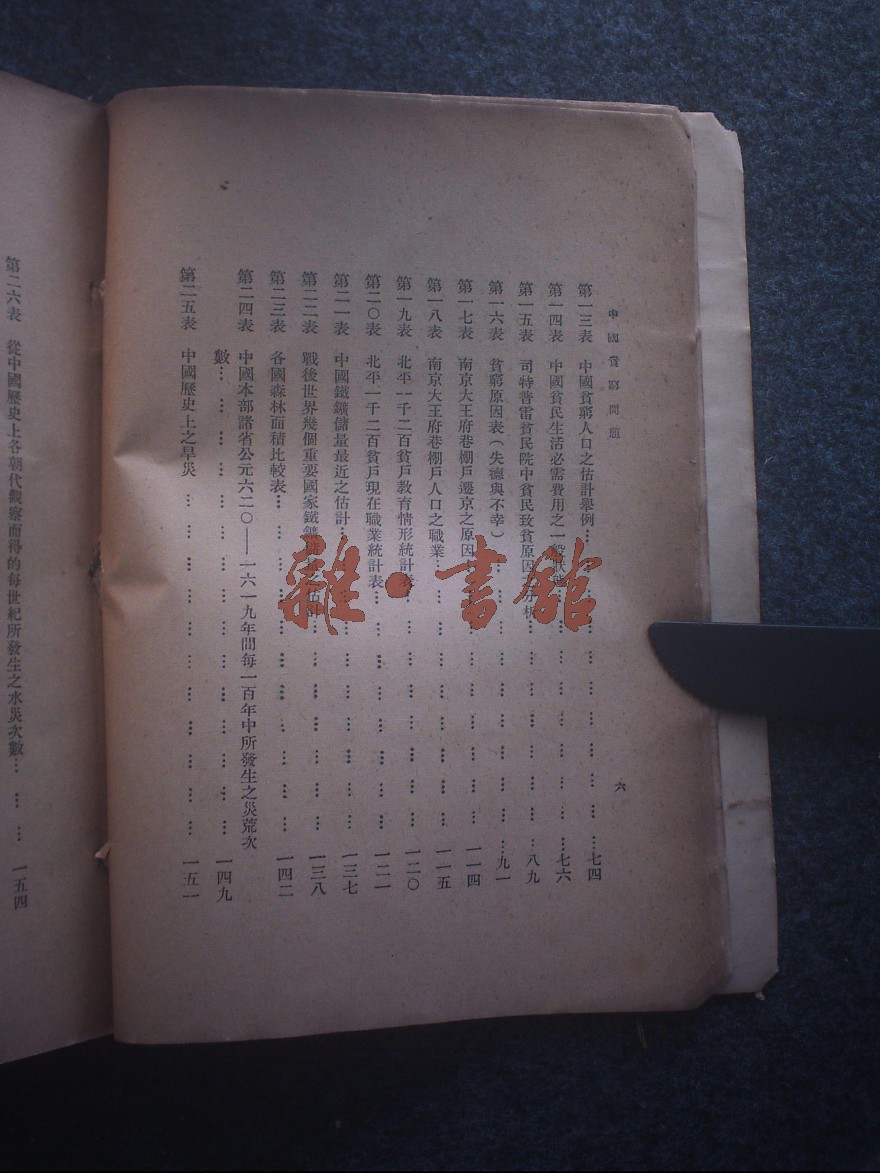 中國貧窮問題
六
第一三表 中國貧窮人口之估計舉例… … … … … … … … …七四
第一四表 中國貧民生活必需費用之一般 … … … … … … … …七六
第一五表 司特普雷貧民院中貧民致貧原因 分析… … … … … … …八九
第一六表 貧窮原因表(失德與不幸)… … … … … … … … …九一
第一七表 南京大王府巷棚戶遷京之原因… … … … … … … …一一四
第一八表 南京大王府巷棚戶人口之職業… … … … … … … …一一五
第一九表 北平一千二百貧戶教育情形統計表… … … … … … …一二〇
第二〇表 北平一千二百貧戶現在職業統計表… … … … … … …一二一
第二一表 中國鐵鑛儲量最近之估計… … … … … … … … …一三七
第二二表 戰後世界幾個重要國家鐵鑛 估計… … … … … … …一三八
第二三表 各國森林面積比較表… … … … … … … … … …一四二
第二四表 中國本部諸省公元六二〇——一六一九年間每一百年中所發生之災荒次
數… … … … … … … … … … … … …一四九
第二五表 中國歷史上之旱災 … … … … … … … … … …一五一
第二六表 從中國歷史上各朝代觀察而得的每世紀所發生之水災次數… … …一五四
雜·書館